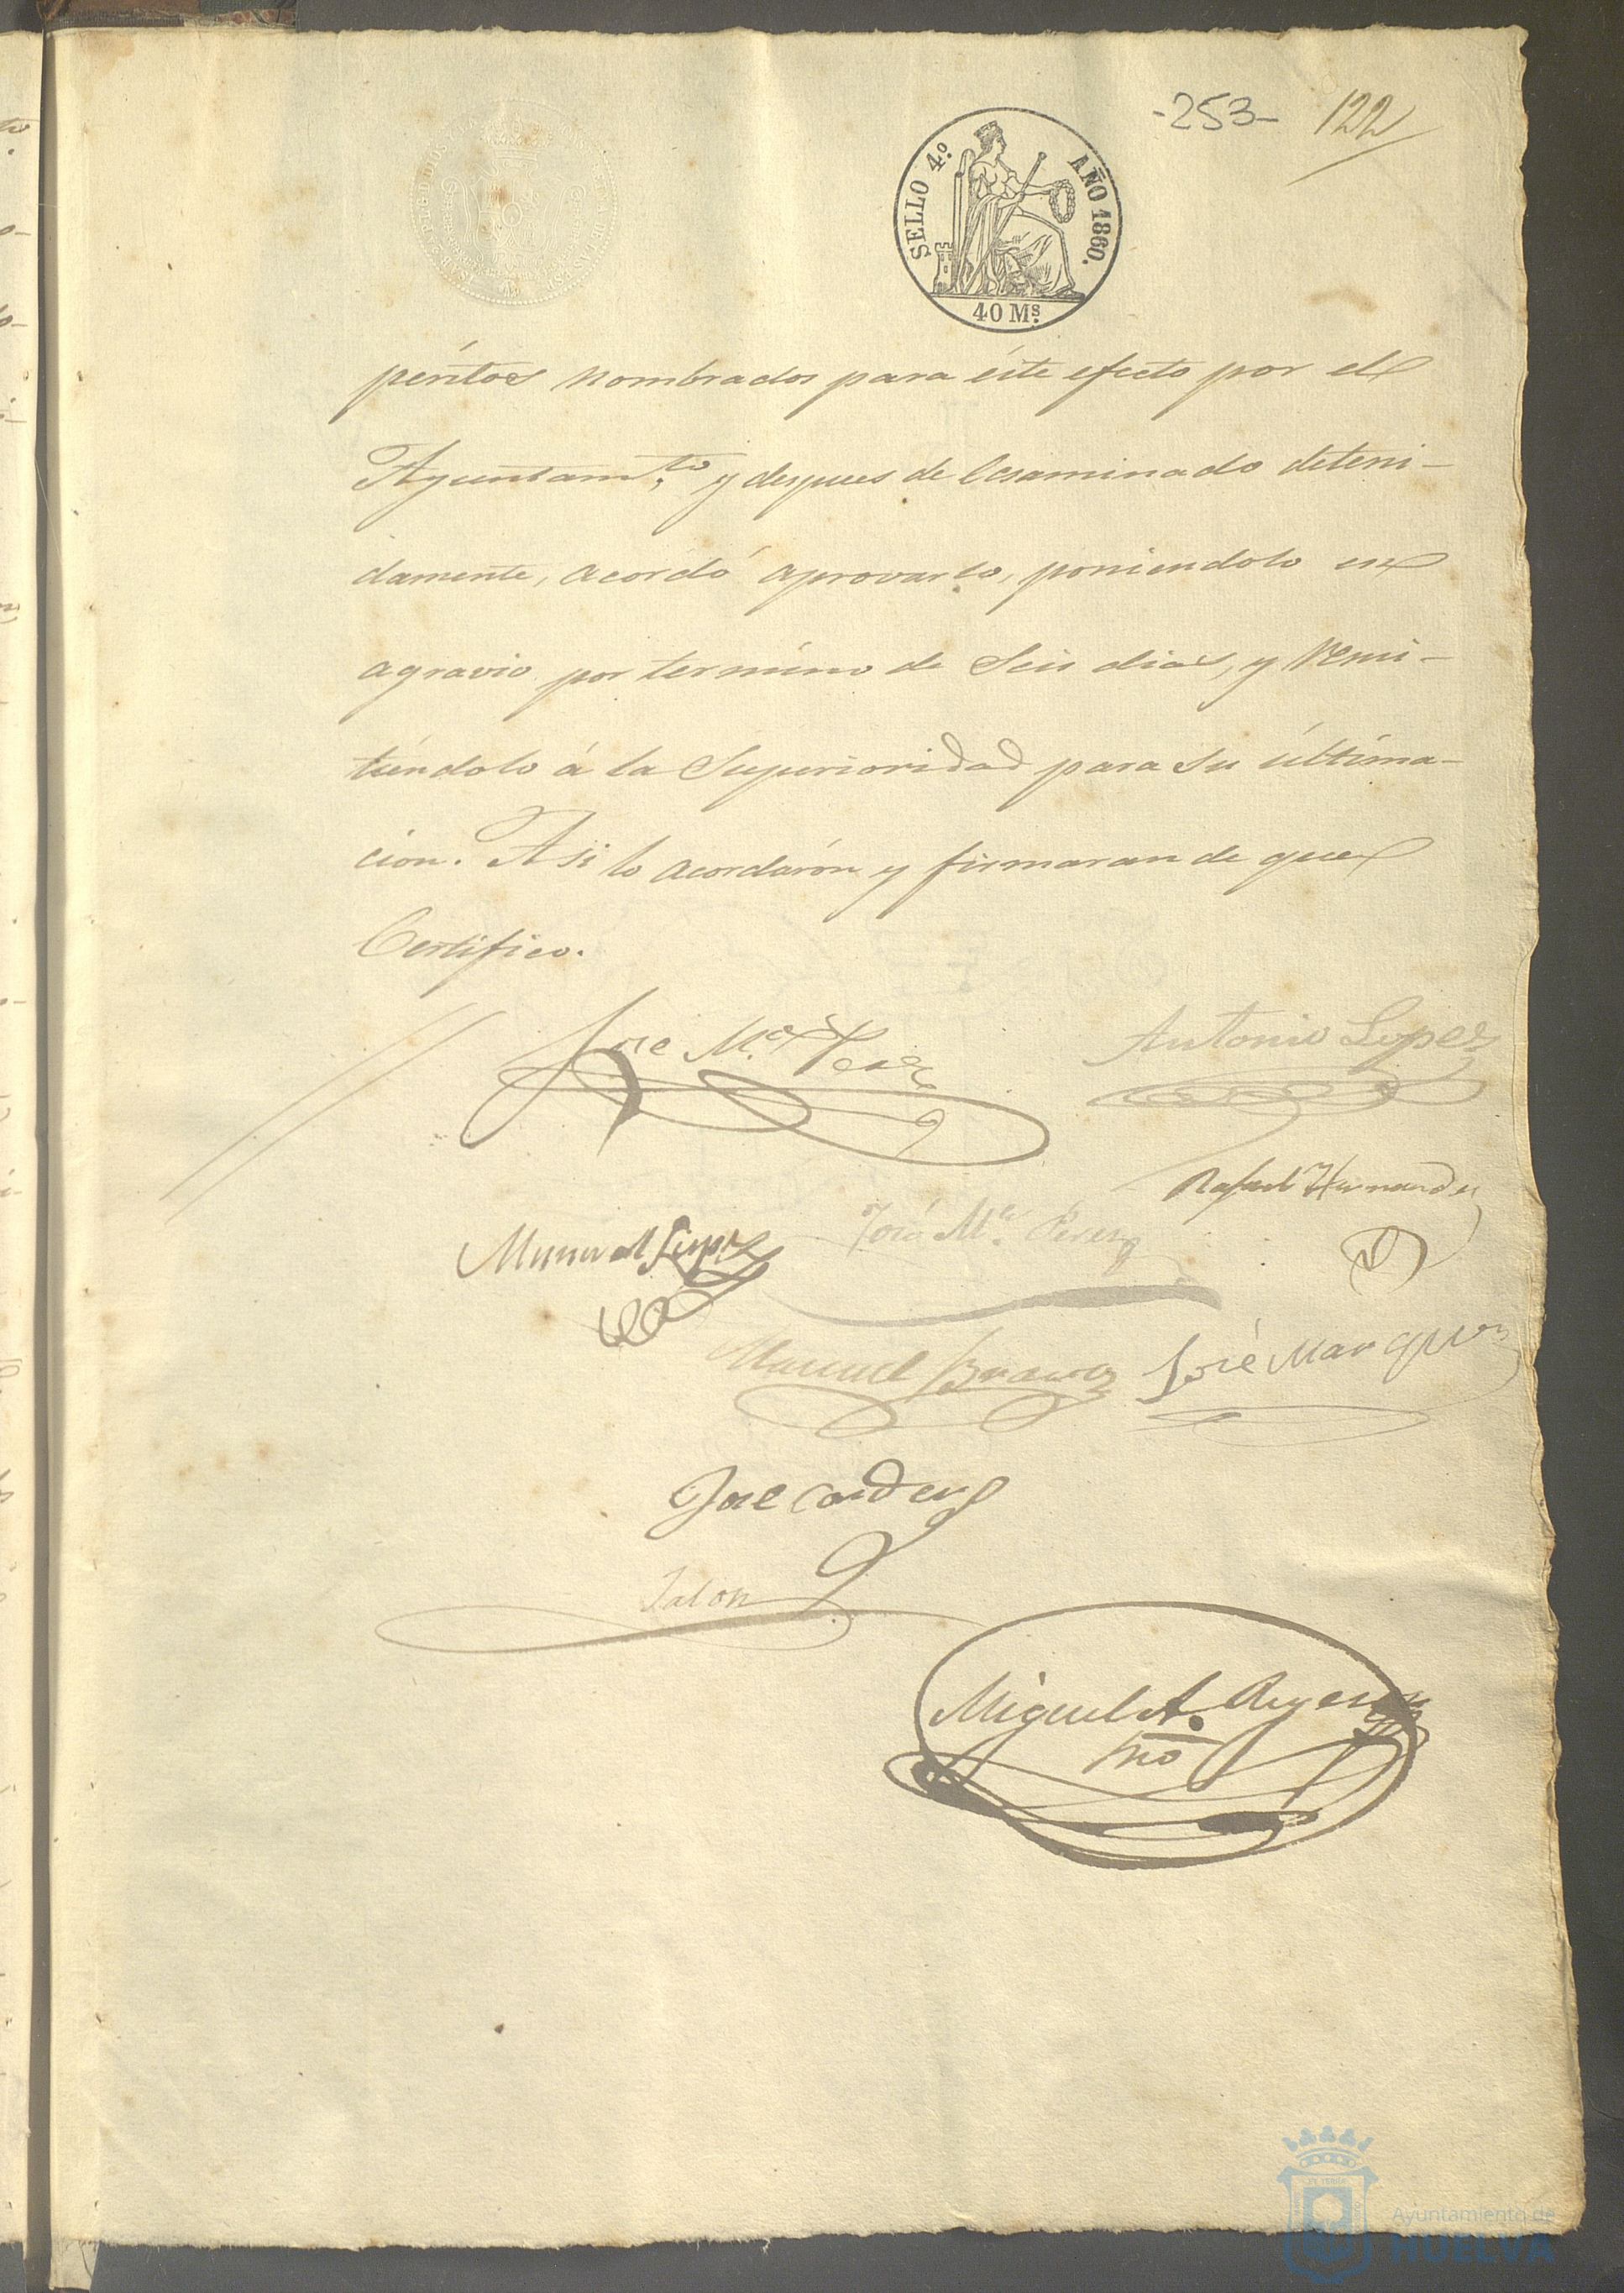 -253- 122
SELLO 4.º AÑO 1860.
40 Ms.
péritos nombrados para éste efecto por el
Ayuntam.to y despues de Ecsaminado deteni-
damente, acordó aprovarlo, poniendolo en
agravio por termino de Seis dias, y remi-
tiéndolo á la Superioridad para su última-
cion. Asi lo acordarón y firmaran de que
Certifico.
José M.a
Antonio Lopez
Rafael Hernandez
Manuel Lopez
José M.a Perez
Manuel
José Marquez
José
Jalon
Miguel A. Reyes
Srio
Ayuntamiento de
HUELVA